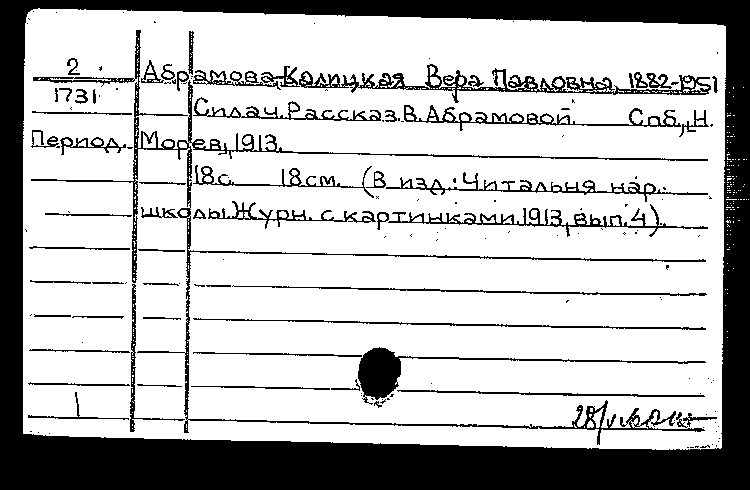 2 Абрамова-Калицкая Вера Павловна, 1882-1951
1731
Силач. Рассказ В. Абрамовой. Спб., Н.
Период. Морев, 1913.
18с. 18см. (В изд.: Читальня нар.
школы. Журн. с картинками. 1913, вып. 4).